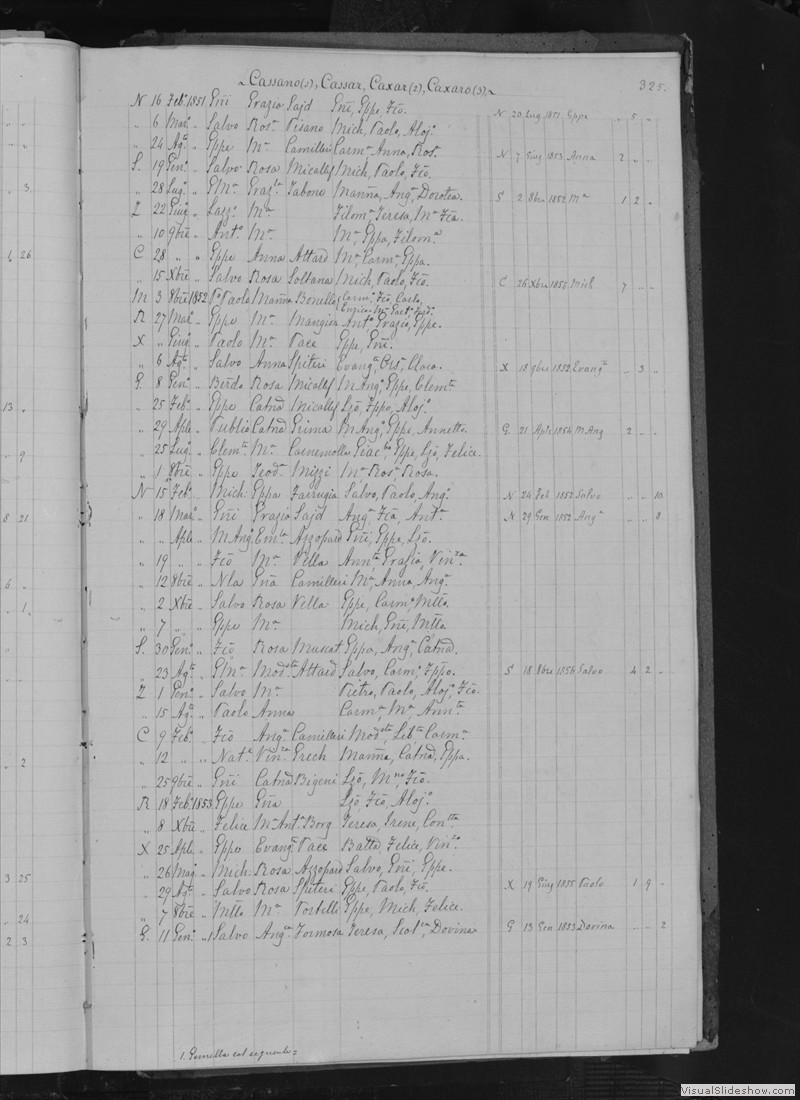 Cassano(1), Cassar, Caxar(2), Caxaro(3)
325.
N 16 Feb.o 1851 Gni Grazia Sajd Gni, Eppe, Fco. N 20 Lug 1851 Eppa .. 5 ..
.. 6 Mar.o .. Salvo Ros.a Pisano Mich, Paolo, Aloj.o
.. 24 Ag.o .. Eppe M.a Camilleri Carm.a Anna, Ros.a
S. 19 Gen.o .. Salvo Rosa Micallef Mich, Paolo, Fco. N 7 Giug 1853 Anna 2 .. ..
.. 28 Lug.o .. G.M.a Graz.la Tabone Manna, Ang.a Dorotea. S 2 8bre 1852 M.a 1 2 ..
Z 22 Giug.o .. Laz.o M.a Filom.a Teresa, M.a Fca.
.. 10 9bre .. Ant.o M.a M.a Eppa, Filom.a
C 28 .. .. Eppe Anna Attard M.a Carm.a Eppa.
.. 15 Xbre .. Salvo Rosa Soltana Mich, Paolo, Fco. C 26 Xbre 1858 Mich 7 .. ..
M 3 8bre 1852 Paolo Manna Bonello Carm.o Fco, Carlo,
R 27 Mar.o .. Eppe M.a Mangion Ant.o Grazia, Eppe.
X .. Giug.o .. Paolo M.a Pace Eppe, Gni.
.. 6 Ag.to .. Salvo Anna Spiteri Evang.ta Ors.a Clara. X 18 9bre 1852 Evang.ta .. 3 ..
G. 8 Gen.o .. Berdo Rosa Micallef M Ang.o Eppe, Clem.te
.. 25 Feb.o .. Eppe Catna Micallef Lzo, Fppo, Aloj.o
.. 29 Aple .. Publio Catna Grima M Ang.o Eppe, Annetto. G. 21 Aple 1854 M Ang 2 .. ..
.. 25 Lug.o .. Clem.te M.a Carnemolla Giac.mo Eppe, Lzo, Felice.
.. 1 8bre .. Eppe Teod.a Mizzi M.a Ros.a Rosa.
N 15 Feb.o .. Mich Eppa Farrugia Salvo, Paolo, Ang.o N 24 Feb 1852 Salvo .. .. 10
.. 18 Mar.o .. Gni Grazia Sajd Ang.a Fca, Ant.a N 29 Gen 1852 Ang.a .. .. 8
.. .. Aple .. M Ang.o Em.la Azzopard Gni, Eppe, Lzo.
.. 19 .. .. Fco M.a Vella Ann.ta Grazia, Vin.za
.. 12 8bre .. Nla Gna Camilleri M.a Anna, Ang.a
.. 2 Xbre .. Salvo Rosa Vella Eppe, Carm.o Mtto.
.. 7 .. .. Eppe M.a Mich, Gni, Mtto.
S. 30 Gen.o .. Fco Rosa Muscat Eppa, Ang.a Catna.
.. 23 Ag.to .. G.M.a Mod.sta Attard Salvo, Carm.o Fppo. S 18 8bre 1856 Salvo 4 2 ..
Z 1 Gen.o .. Salvo M.a Pietro, Paolo, Aloj.o Fco.
.. 15 Ag.to .. Paolo Anna Carm.a M.a Ann.ta
C 9 Feb.o .. Fco Ang.a Camilleri Mod.sta, Lib.ta Carm.a
.. 12 .. .. Nat.e Vin.za Grech Manna, Catna, Eppa.
.. 25 9bre .. Gni Catna Bigeni Lzo, M.no Fco.
R 18 Feb.o 1853 Eppe Gna Lzo, Fco, Aloj.o
.. 8 Xbre .. Felice M.a Ant.a Borg Teresa, Irene, Con.tta
X 25 Aple .. Eppe Evang.ta Pace Batta, Felice, Vin.zo
.. 26 Mag.o .. Mich Rosa Azzopard Salvo, Gni, Eppe.
.. 29 Ag.to .. Salvo Rosa Spiteri Eppe, Paolo, Fco. X 19 Giug 1855 Paolo 1 9 ..
.. 7 8bre .. Mtto M.a Portelli Eppe, Mich, Felice.
G. 11 Gen.o .. 1 Salvo Ang.ca Formosa Teresa, Scol.ca, Dovina G 13 Gen 1853 Dovina .. .. 2
1. Gemella col seguente
VisualSlideshow.com